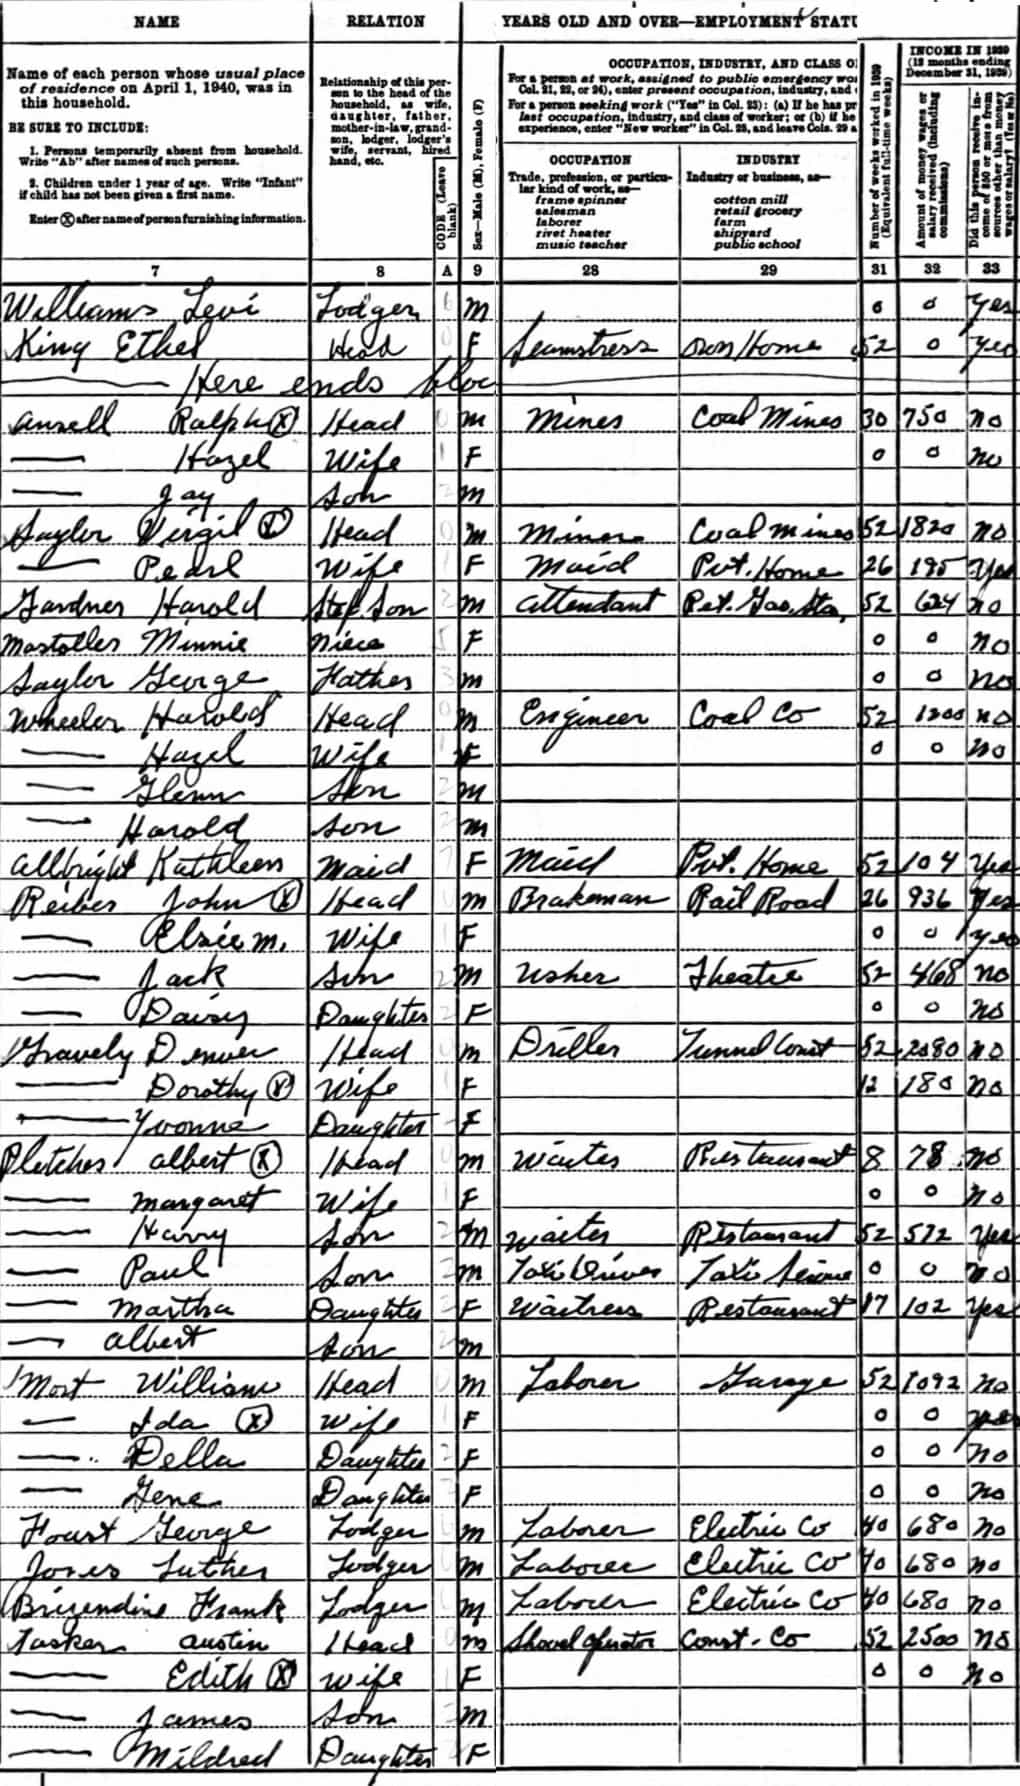 NAME RELATION YEARS OLD AND OVER—EMPLOYMENT STATU
Name of each person whose usual place of residence on April 1, 1940, was in this household.
BE SURE TO INCLUDE:
1. Persons temporarily absent from household. Write "Ab" after names of such persons.
2. Children under 1 year of age. Write "Infant" if child has not been given a first name.
Enter ⓧ after name of person furnishing information.
Relationship of this person to the head of the household, as wife, daughter, father, mother-in-law, grandson, lodger, lodger's wife, servant, hired hand, etc.
CODE (Leave blank)
Sex—Male (M), Female (F)
OCCUPATION, INDUSTRY, AND CLASS O
For a person at work, assigned to public emergency wo
Col. 21, 22, or 24), enter present occupation, industry, and
For a person seeking work ("Yes" in Col. 23): (a) If he has pr
last occupation, industry, and class of worker; or (b) if he
experience, enter "New worker" in Col. 28, and leave Cols. 29 a
OCCUPATION
Trade, profession, or particular kind of work, as—
frame spinner
salesman
laborer
rivet heater
music teacher
INDUSTRY
Industry or business, as—
cotton mill
retail grocery
farm
shipyard
public school
Number of weeks worked in 1939 (Equivalent full-time weeks)
INCOME IN 1939 (12 months ending December 31, 1939)
Amount of money wages or salary received (including commissions)
Did this person receive income of $50 or more from sources other than money wages or salary? (Yes or No)
7 8 A 9 28 29 31 32 33
Williams Levi Lodger M 0 0 Yes
King Ethel Head F Seamstress Own Home 52 0 Yes
Here ends bloc
Ansell Ralph ⓧ Head M Mines Coal Mines 30 750 No
— Hazel Wife F 0 0 No
— Jay Son M
Saylor Virgil ⓧ Head M Miner Coal Mines 52 1820 No
— Pearl Wife F Maid Pvt. Home 26 195 Yes
Gardner Harold Step Son M Attendant Ret. Gas Sta. 52 624 No
Mostoller Minnie Niece F 0 0 No
Saylor George Father M 0 0 No
Wheeler Harold Head M Engineer Coal Co 52 1200 No
— Hazel Wife F 0 0 No
— Glenn Son M
— Harold Son M
Allbright Kathleen Maid F Maid Pvt. Home 52 104 Yes
Reiber John ⓧ Head M Brakeman Rail Road 26 936 Yes
— Elsie M. Wife F 0 0 Yes
— Jack Son M Usher Theatre 52 468 No
— Daisy Daughter F 0 0 No
Gravely Denver Head M Driller Tunnel Const 52 2080 No
— Dorothy ⓧ Wife F 12 180 No
— Yvonne Daughter F
Pletcher Albert ⓧ Head M Waiter Restaurant 8 78 No
— Margaret Wife F 0 0 No
— Harry Son M Waiter Restaurant 52 572 Yes
— Paul Son M Taxi Driver Taxi Service 0 0 No
— Martha Daughter F Waitress Restaurant 17 102 Yes
— Albert Son M
Most William Head M Laborer Garage 52 1092 No
— Ida ⓧ Wife F 0 0 Yes
— Della Daughter F 0 0 No
— Gene Daughter F 0 0 No
Foust George Lodger M Laborer Electric Co 40 680 No
Jones Luther Lodger M Laborer Electric Co 40 680 No
Brizendine Frank Lodger M Laborer Electric Co 40 680 No
Tasker Austin Head M Shovel Operator Const. Co 52 2500 No
— Edith ⓧ Wife F 0 0 No
— James Son M
— Mildred Daughter F